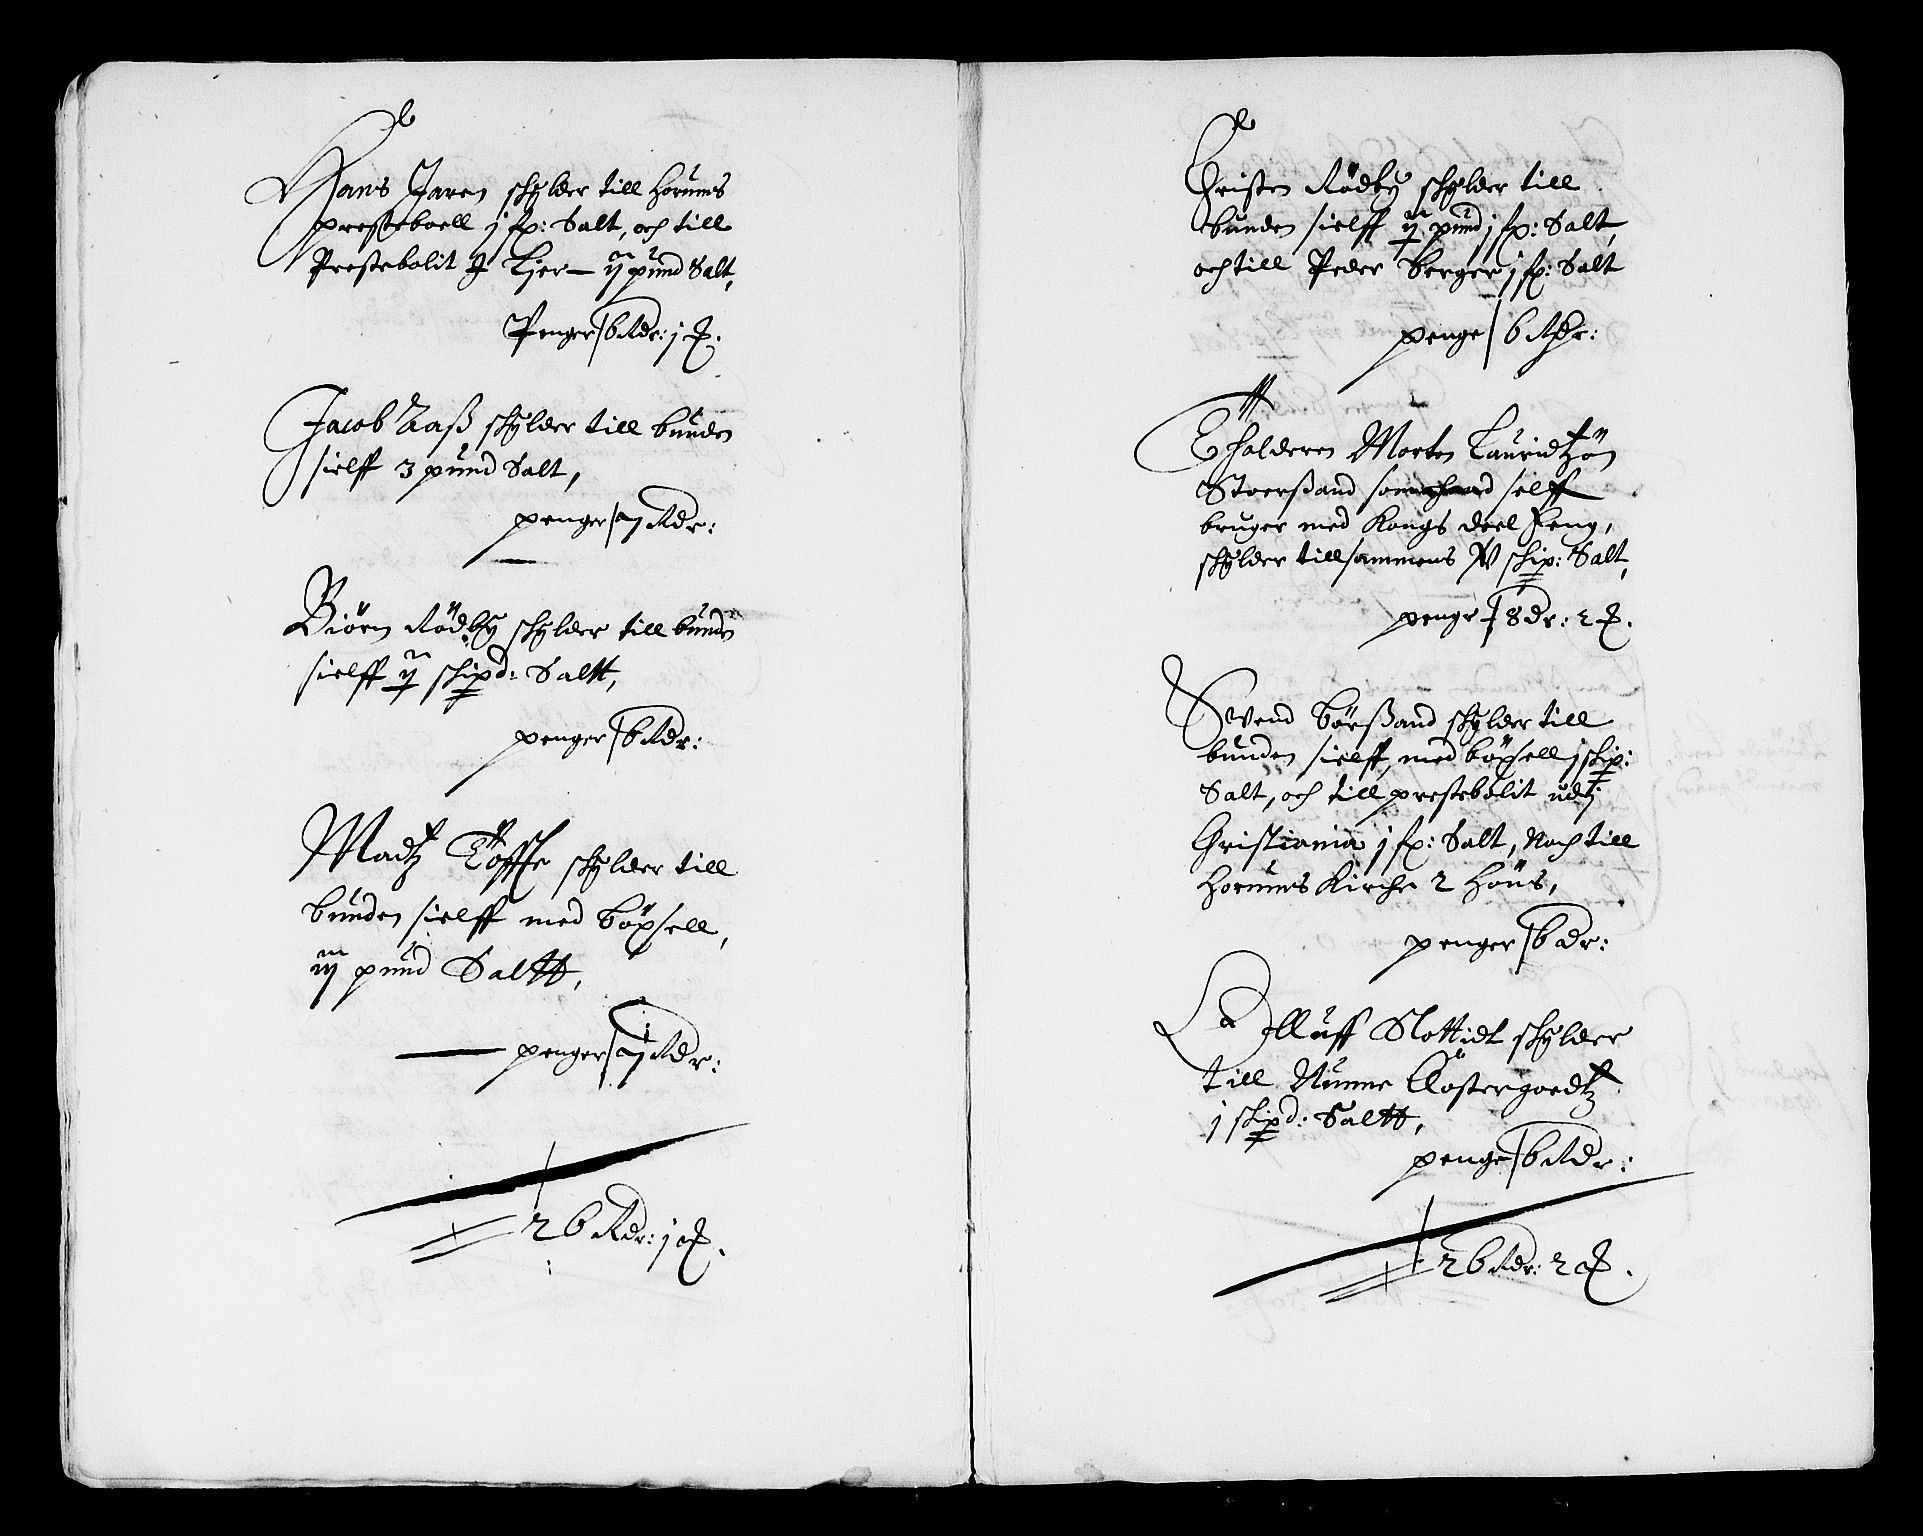 Hans Jaren schylder till Horums
presteboell j fp: Salt, och till
Prestebolit J Lier — ij pund Salt,
Penger 6 Rdr: j
Jacob Aaß schylder till bunden
sielff 3 pund Salt,
penger 7 Rdr:
Biörn Rödby schylder till bunden
sielff ij schipd: Saltt,
penger 6 Rdr:
Madtz Töffte schylder till
bunden sielff med böxsell,
iij pund Saltt,
penger 7 Rdr:
26 Rdr: j
Christen Rödby schylder till
bunden sielff ij pund j fp: Salt,
och till Peder Berger j fp: Salt
penge 6 Rdr:
Morten Lauridtzön
Stoersand som selff
bruger med Kongs deel Eeng,
schylder tillsammens schip: Salt,
penge 8 dr: 2
Svend Börsand schylder till
bunden sielff, med böxsell j schip:
Salt, och till prestebolit udtj
Christiania j fp: Salt, Noch till
Horums Kirche 2 Höns,
penger 6 dr:
Olluff Slottidt schylder
till Nunne Clostergoedtz
j schipd: Saltt,
penge 6 Rdr:
26 Rdr: 2